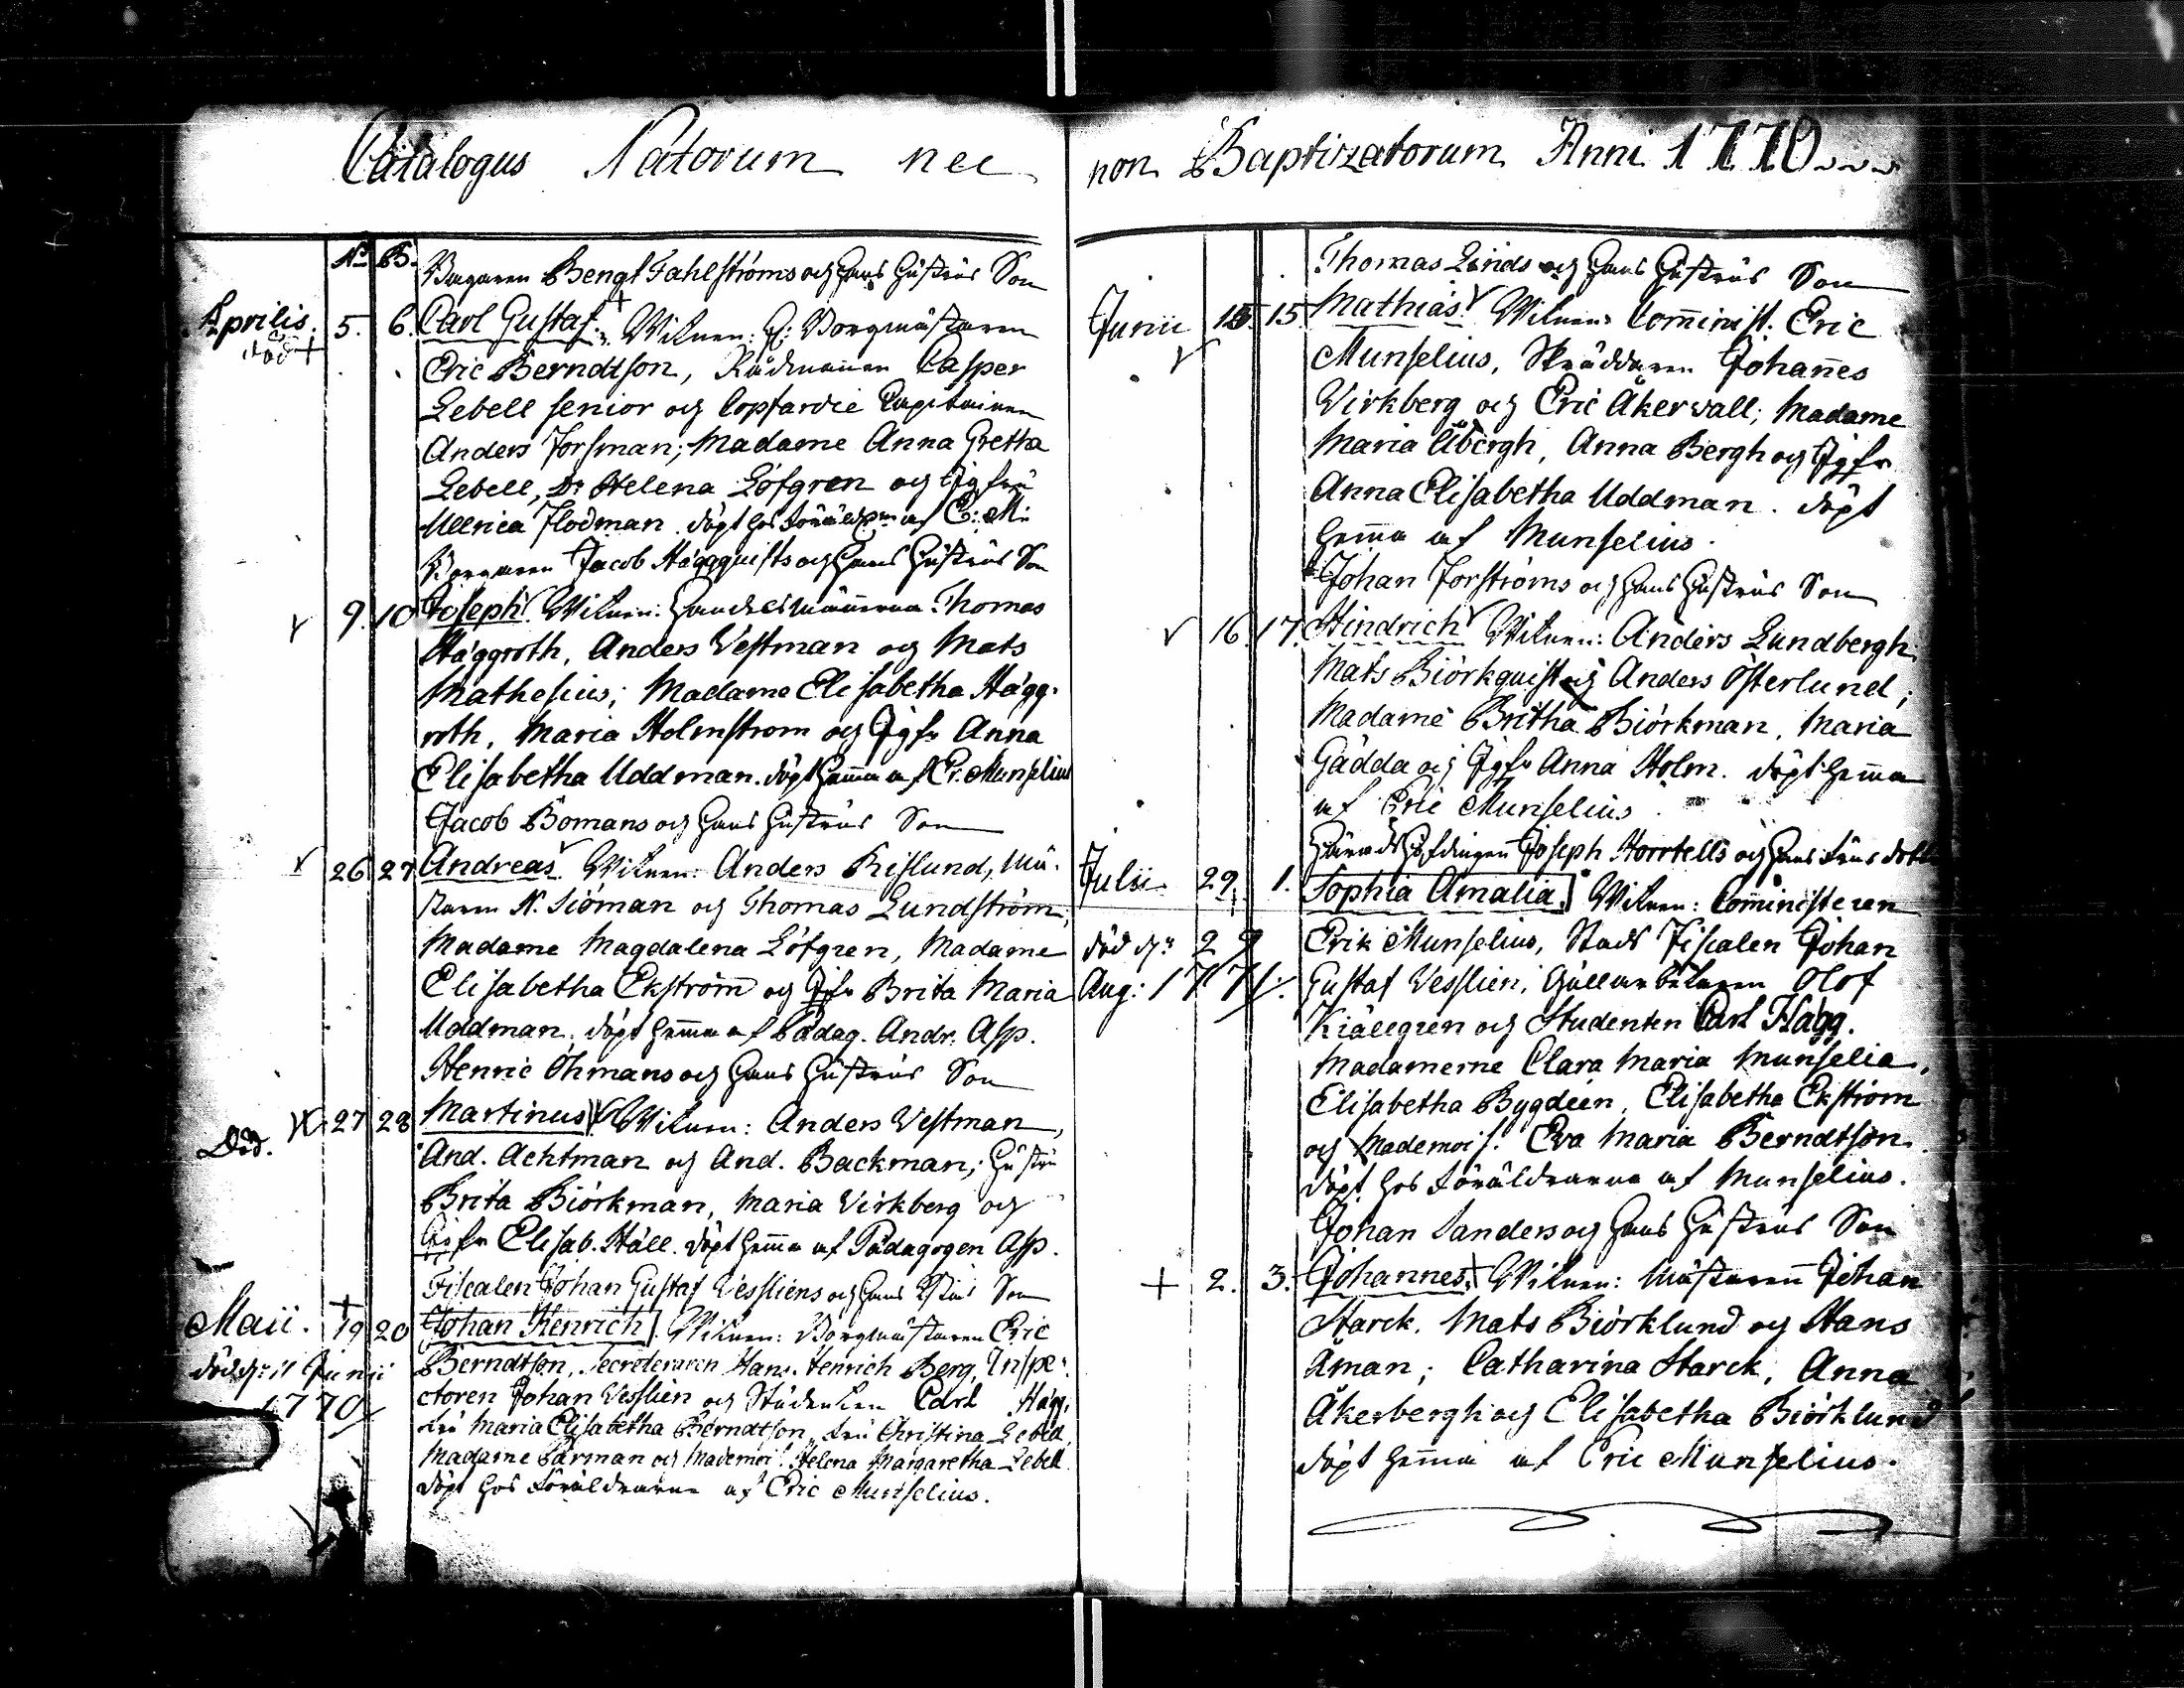 Catalogus Natorum nec
Nat. B. Bagaren Bengt Fahlströms och hans hustrus Son
Aprilis. 5. 6. Carl Gustaf. Witnen: H: Borgmästaren
död + Eric Berndtson, Rådmannen Casper
Lebell senior och Copfardie Capitainen
Anders Forsman; Madame Anna Gretha
Lebell, Dr Helena Löfgren och Jgfru
Ullrica Flodman. döpt hos föräldrn af E: M:
Borgaren Jacob Häggquists och hans hustrus Son
9. 10 Joseph. Witnen: Handelsmännerna Thomas
Häggroth, Anders Vestman och Mats
Mathesius; Madame Elisabetha Hägg-
roth, Maria Holmstrom och Jgfr Anna
Elisabetha Uddman. döpt hemma af Er. Munselius
Jacob Bomans och hans hustrus Son
26 27 Andreas. Witnen: Anders Rislund, Mä-
staren N. Siöman och Thomas Lundström;
Madame Magdalena Löfgren, Madame
Elisabetha Ekström och Jgfr Brita Maria
Uddman. döpt hemma af Pädag. Andr. Asp.
Henric Öhmans och hans hustrus Son
27 28 Martinus. Witnen: Anders Vestman,
Död. And. Achtman och And. Backman; Hustru
Brita Biörkman, Maria Virkberg och
Jgfr Elisab. Häll. döpt hemma af Pädagogen Asp.
Fiscalen Johan Gustaf Vessliens och hans Son
Maii. + 19 20 Johan Henrich. Witnen: Borgmästaren Eric
död d: 11 Junii Berndtson, Secreteraren Hans Henrich Berg, Inspe-
1770 ctoren Johan Vesslien och Studenten Carl Hägg,
fru Maria Elisabetha Berndtson, fru Christina Lebell,
Madame Barman och Mademois. Helena Margaretha Lebell.
döpt hos föräldrarne af Eric Munselius.
non Baptizatorum Anni 1770
Thomas Linds och hans hustrus Son
Junii 15. 15. Mathias. Witnen: Cominist. Eric
Munselius, Skräddaren Johannes
Virkberg och Eric Åkervall; Madame
Maria Åbergh, Anna Bergh och Jgfr
Anna Elisabetha Uddman. döpt
hemma af Munselius.
Johan Forströms och hans hustrus Son
16. 17. Hindrich. Witnen: Anders Lundbergh,
Mats Biörkquist och Anders Österlund;
Madame Britha Biörkman, Maria
Gädda och Jgfr Anna Holm. döpt hemma
af Eric Munselius.
Häradshöfdingen Joseph Horrtells och hans frus dotter
Julii 29. 1. Sophia Amalia. Witnen: Cominsteren
död dn 29 Erik Munselius, Stads Fiscalen Johan
Aug: 1771. Gustaf Vesslien, Gällarbetaren Olof
Kiällgren och Studenten Carl Hägg.
Madamerne Clara Maria Munselia,
Elisabetha Bygdeen, Elisabetha Ekstrom
och Mademois. Eva Maria Berndtson.
döpt hos föräldrarne af Munselius.
Johan Sanders och hans hustrus Son
+ 2. 3. Johannes. Witnen: Mästaren Johan
Starck, Mats Biörklund och Hans
Åman; Catharina Starck, Anna
Åkerbergh och Elisabetha Biörklund
döpt hemma af Eric Munselius.